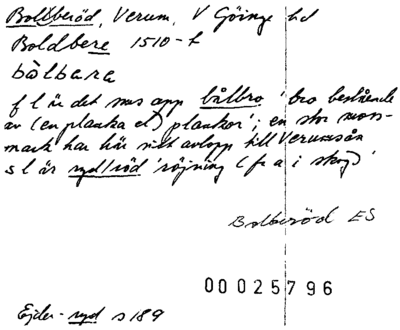 Bollberöd, Verum, V Göinge hd
Boldbere 1510-t
bålbara
f l är det nus app bålbro 'bro bestående
av (en planka el) plankor'; en stor moss-
mark har här sitt avlopp till Verumsån
s l är ryd/röd 'röjning (fr a i skog)'
Bolberöd ES
00025796
Ejder-ryd s 189